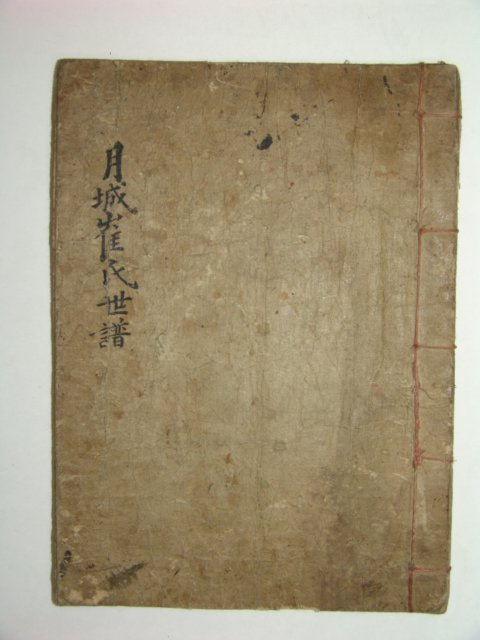 月城崔氏世譜